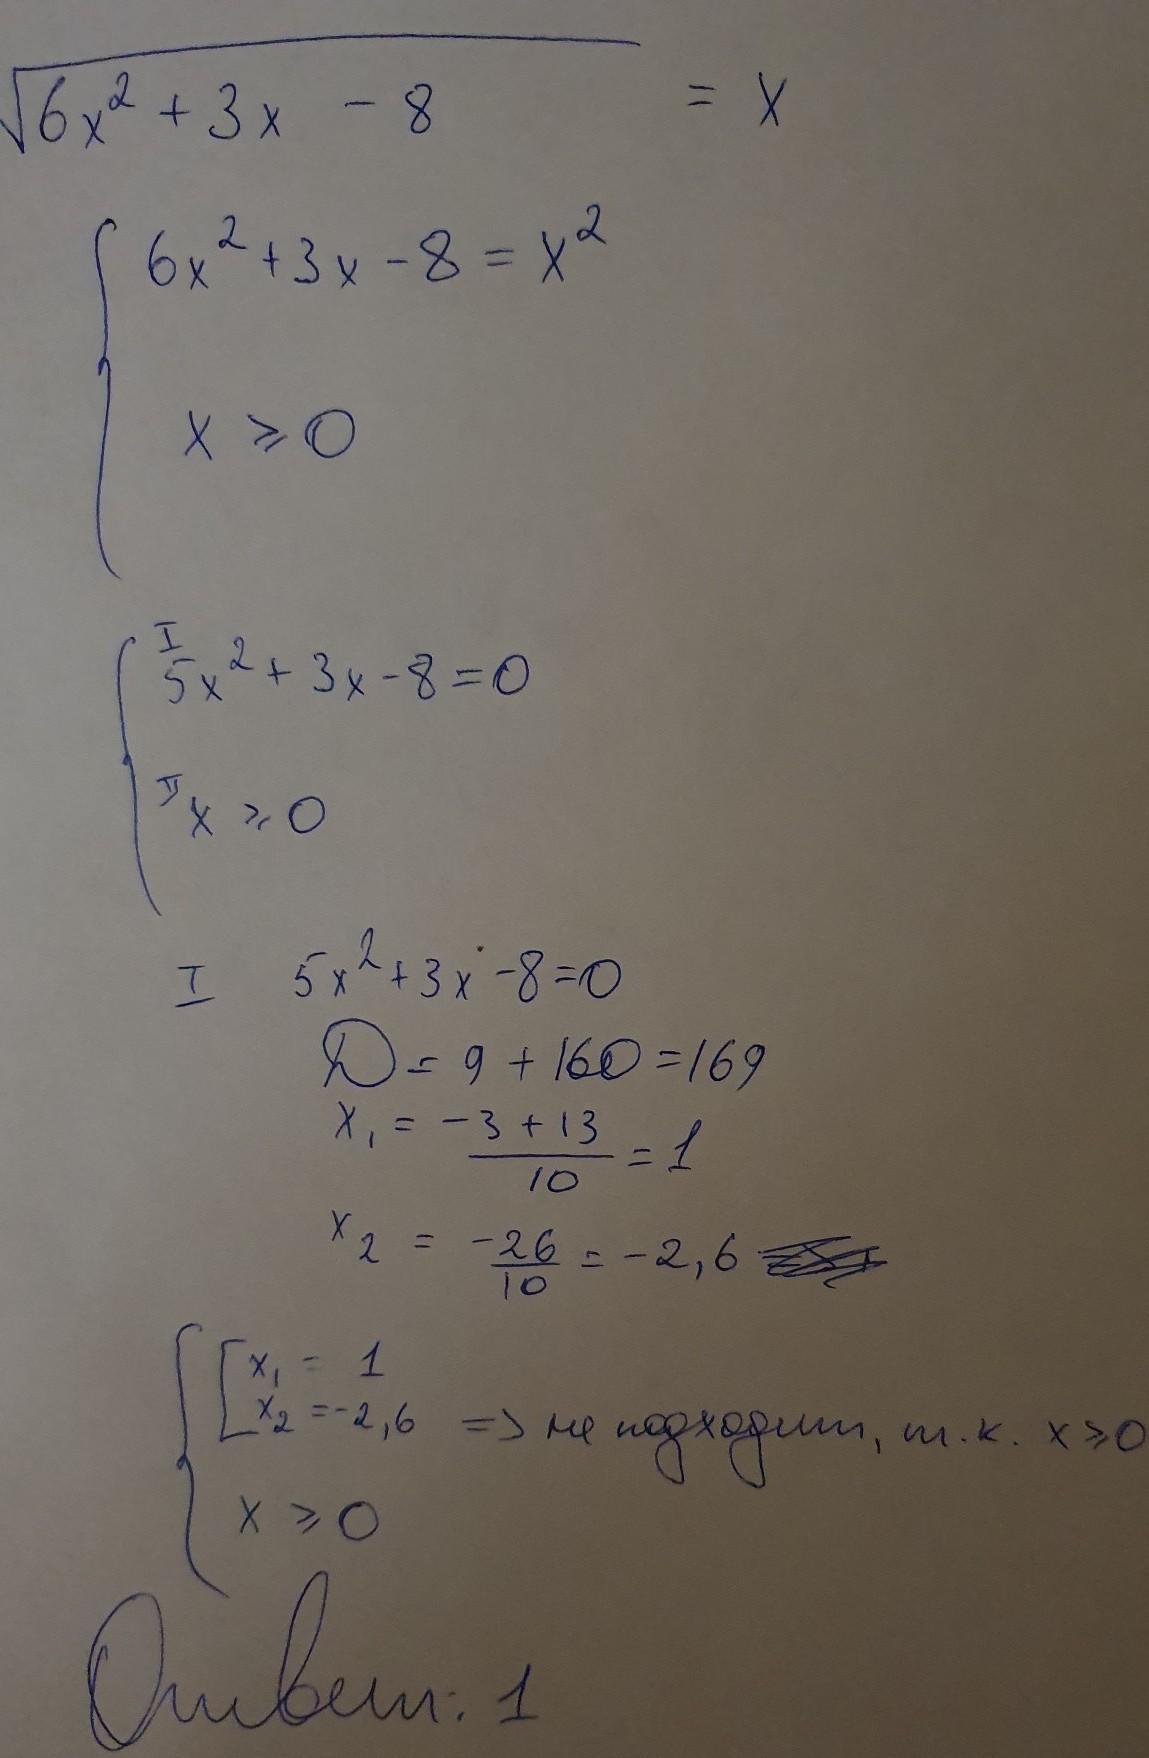 √6x² + 3x - 8 = x
6x² + 3x - 8 = x²
x ⩾ 0
I
5x² + 3x - 8 = 0
II x ⩾ 0
I 5x² + 3x - 8 = 0
D = 9 + 160 = 169
x₁ = -3 + 13 / 10 = 1
x₂ = -26 / 10 = -2,6
x₁ = 1
x₂ = -2,6 => не подходит, т.к. x ⩾ 0
x ⩾ 0
Ответ: 1